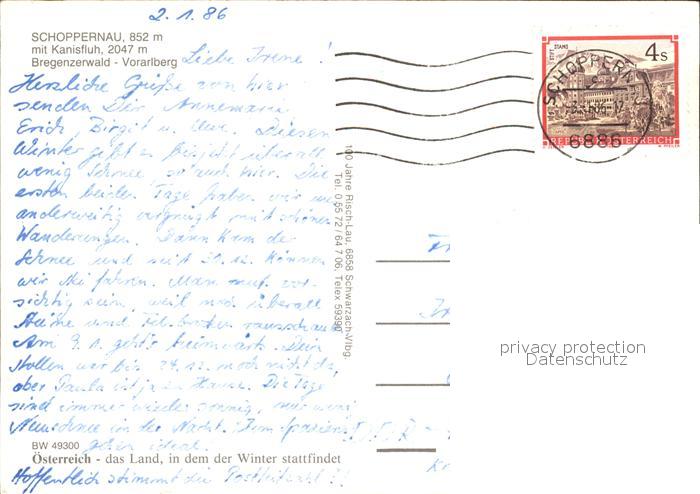 2.1.86
SCHOPPERNAU, 852 m
mit Kanisfluh, 2047 m
Bregenzerwald - Vorarlberg
Liebe Irene!
Herzliche Grüße von hier
senden Dir Annemarie
Erich, Birgit u. Uwe. Diesen
Winter gibt es überall
wenig Schnee so auch hier. Die
ersten beiden Tage haben wir uns
anderweitig vergnügt mit schönen
Wanderungen. Dann kam der
Schnee und seit 30.12. können
wir Ski fahren. Man muß vor-
sichtig sein, weil noch überall
Steine und Felsbrocken rausschauen
Am 9.1. geht's heimwärts. Dein
Stollen war bis 24.12. noch nicht da,
aber Paula ist ja zu Hause. Die Tage
sind immer wieder sonnig, nur wenig
Neuschnee in der Nacht. Zum Spazieren
gehen ideal.
BW 49300
Österreich - das Land, in dem der Winter stattfindet
Hoffentlich stimmt die Postleitzahl?!
100 Jahre Risch-Lau, 6858 Schwarzach-Vlbg.
Tel. 0 55 72/64 7 06, Telex 59390
STIFT STAMS
4 S
REPUBLIK ÖSTERREICH
SCHOPPERN
6886
DDR -
privacy protection
Datenschutz